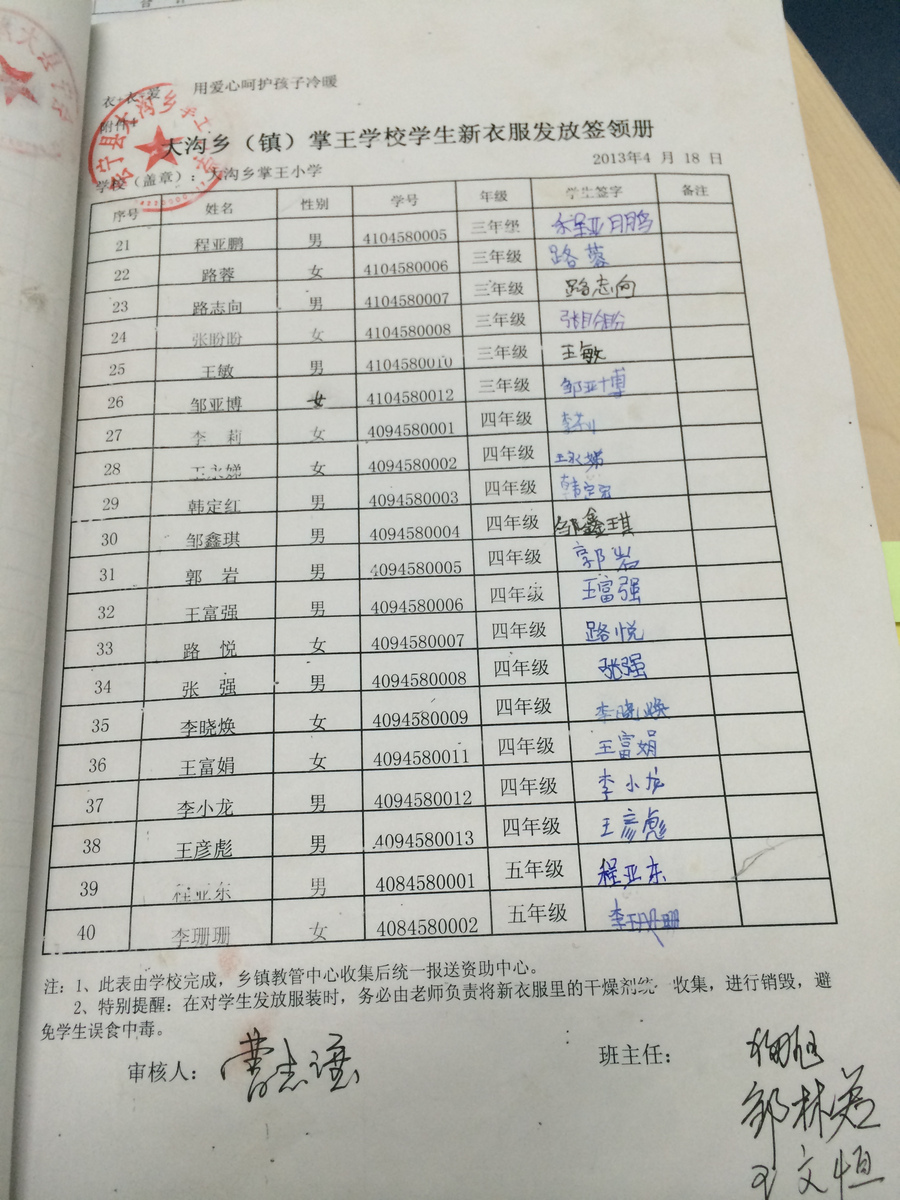 衣+衣=爱 用爱心呵护孩子冷暖
附件4
大沟乡（镇）掌王学校学生新衣服发放签领册
2013年4 月 18 日
学校（盖章）：大沟乡掌王小学
序号 姓名 性别 学号 年级 学生签字 备注
21 程亚鹏 男 4104580005 三年级 程亚鹏
22 路蓉 女 4104580006 三年级 路蓉
23 路志向 男 4104580007 三年级 路志向
24 张盼盼 女 4104580008 三年级 张盼盼
25 王敏 男 4104580010 三年级 王敏
26 邹亚博 女 4104580012 三年级 邹亚博
27 李 莉 女 4094580001 四年级 李莉
28 王永娣 女 4094580002 四年级 王永娣
29 韩定红 男 4094580003 四年级 韩定
30 邹鑫琪 男 4094580004 四年级 邹鑫琪
31 郭 岩 男 4094580005 四年级 郭岩
32 王富强 男 4094580006 四年级 王富强
33 路 悦 女 4094580007 四年级 路悦
34 张 强 男 4094580008 四年级 张强
35 李晓焕 女 4094580009 四年级 李晓焕
36 王富娟 女 4094580011 四年级 王富娟
37 李小龙 男 4094580012 四年级 李小龙
38 王彦彪 男 4094580013 四年级 王彦彪
39 程亚东 男 4084580001 五年级 程亚东
40 李珊珊 女 4084580002 五年级 李珊珊
注：1、此表由学校完成，乡镇教管中心收集后统一报送资助中心。
2、特别提醒：在对学生发放服装时，务必由老师负责将新衣服里的干燥剂统一收集，进行销毁，避
免学生误食中毒。
审核人： 班主任：
邹林
王文恒